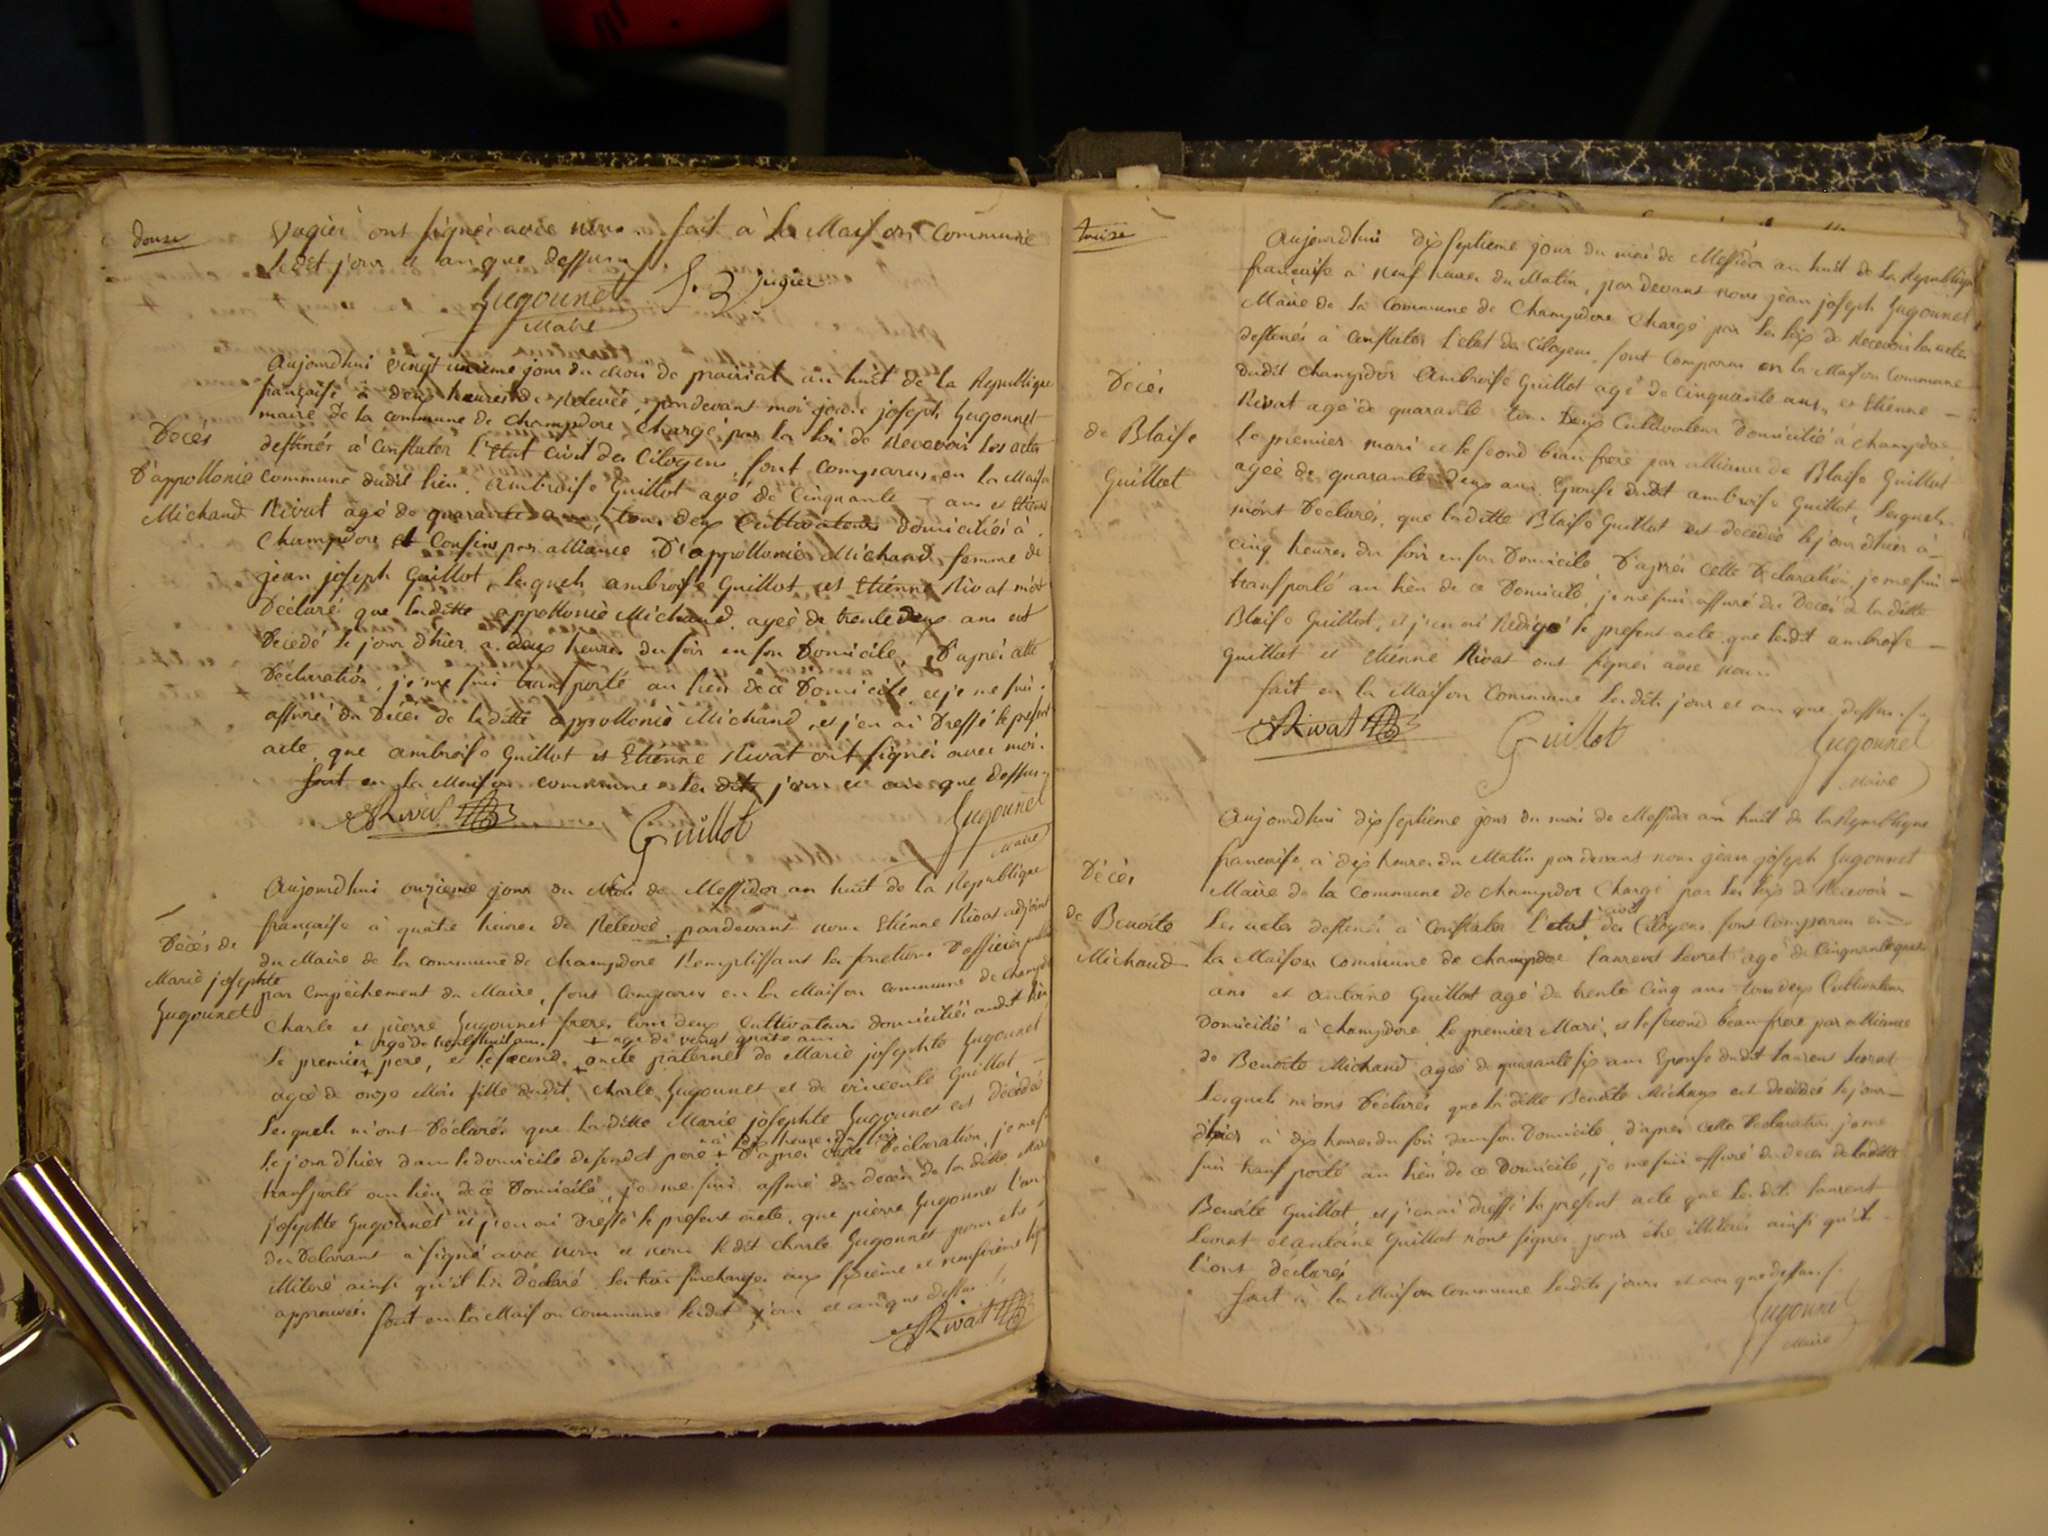 douze
Vugier ont signés avec nous. fait à la Maison Commune
lesdit jour et an que dessus.
Gugounet J. B. Vugier
Maire
Décés
D'appollonie
Michaud
Aujourdhui vingt unieme jour du mois de prairiat an huit de la Republique
française à deux heures de Relevée, pardevant moi jean joseph Gugonnet
maire de la commune de champdore chargé par la loi de Recevoir les actes
destinés à Constater l'Etat civil des Citoyens, sont comparus en la Maison
commune dudit lieu. ambroise Guillot agé de Cinquante ans et Etienne
Rivat agé de quarante ans, tous deux Cultivateurs domiciliés à
Champdore et Cousins par alliance D'appollonie Michaud femme de
jean joseph Guillot, lesquels ambroise Guillot et Etienne Rivat m'ont
Déclaré que laditte appollonie Michaud, agée de trente deux ans est
Décedé le jour d'hier à deux heures du soir en son Domicile, D'après cette
Déclaration, je me suis transporté au lieu de ce Domicile, et je me suis
assuré du Décés de laditte appollonie Michaud, et j'en ai Dressé le present
acte que ambroise Guillot et Etienne Rivat ont signés avec moi.
fait en la Maison commune les dits jour et an que dessus
Rivat Guillot Gugounet
Maire
Décés de
Marie josephte
Gugounet
Aujourdhui onzieme jour du Mois de Messidor an huit de la Republique
française à quatre heures de Relevée, pardevant nous Etiénne Rivat adjoint
du Maire de la commune de champdore Remplissant les fonctions D'officier public
par Empèchement du Maire, sont Comparus en la Maison commune de champdore
Charle et pierre Gugounet freres tous deux Cultivateurs domiciliés audit lieu
+ agé de vingt quatre ans
le premier + pere, et le second + oncle paternel de Marie josephte Gugounet
agée de onze Mois fille dudit Charle Gugounet et de vincente Guillot
Lesquels m'ont Déclarés que laditte Marie josephte Gugounet est Décédée
+ à dix heures du soir
le jour d'hier dans le domicile de sondit pere + D'après cette Déclaration, je me suis
transporté au lieu de ce Domicile, je me suis assuré du decés de la ditte Marie
josephte Gugounet et j'en ai Dressé le present acte, que pierre Gugounet l'un
des Déclarans a signé avec nous et non le dit Charle Gugounet pour etre
illiteré ainsi qu'il l'a Déclaré. les trois surcharges aux
approuvés fait en la Maison commune lesdit jour et an que dessus
Rivat
treize
Décés
de Blaise
Guillot
Aujourdhui dix septieme jour du mois de Messidor an huit de la Republique
française à neuf heures du Matin, pardevant nous jean joseph Gugounet
Maire de la Commune de Champdore Chargé par les loix de Recevoir les actes
destinés à Constater l'etat des Citoyens, sont Comparus en la Maison Commune
dudit Champdor Ambroise Guillot agé de Cinquante ans, et Etiénne
Rivat agé de quarante tous Deux Cultivateurs Domicilié à champdor
le premier mari et le second beau frere par alliance de Blaise Guillot
agée de quarante deux ans Epouse dudit ambroise Guillot, lesquels
m'ont Déclarés, que laditte Blaise Guillot est decedée le jour d'hier à
cinq heures du soir en son Domicile, D'après cette Déclaration, je me suis
transporté au lieu de ce Domicile, je me suis assuré du Decés de laditte
Blaise Guillot, et j'en ai Redigé le present acte que lesdit ambroise
Guillot et Etiénne Rivat ont signés avec nous
fait en la Maison Commune lesdits jour et an que dessus
Rivat Guillot Gugounet
Maire
Décés
de Benoite
Michaud
Aujourdhui dix septieme jour du mois de Messidor an huit de la Republique
francaise, à dix heures du Matin par devant nous jean joseph Gugounet
Maire de la commune de champdor Chargé par les loix de Recevoir
civil
les actes destinés à Constater l'etat des Citoyens sont Comparus en
la Maison commune de champdore laurent agé de Cinquante quatre
ans et antoine Guillot agé de trente cinq ans tous deux Cultivateurs
Domicilié à champdore le premier Mari, et le second beau frere par alliance
de Benoite Michaud agée de quarante six ans Epouse dudit laurent
Lesquels m'ons Déclarés que laditte Benoite Michaux est decedée le jour
d'hier à dix heures du soir dans son Domicile, d'après cette Déclaration je me
suis transporté au lieu de ce Domicile, je me suis assuré du decés de laditte
Benoite Guillot, et j'en ai dressé le present acte que lesdits laurent
et antoine Guillot n'ont signés pour étre illiterés ainsi qu'ils
l'ont déclarés
fait à la Maison Commune lesdits jours et an que dessus.
Gugounet
Maire